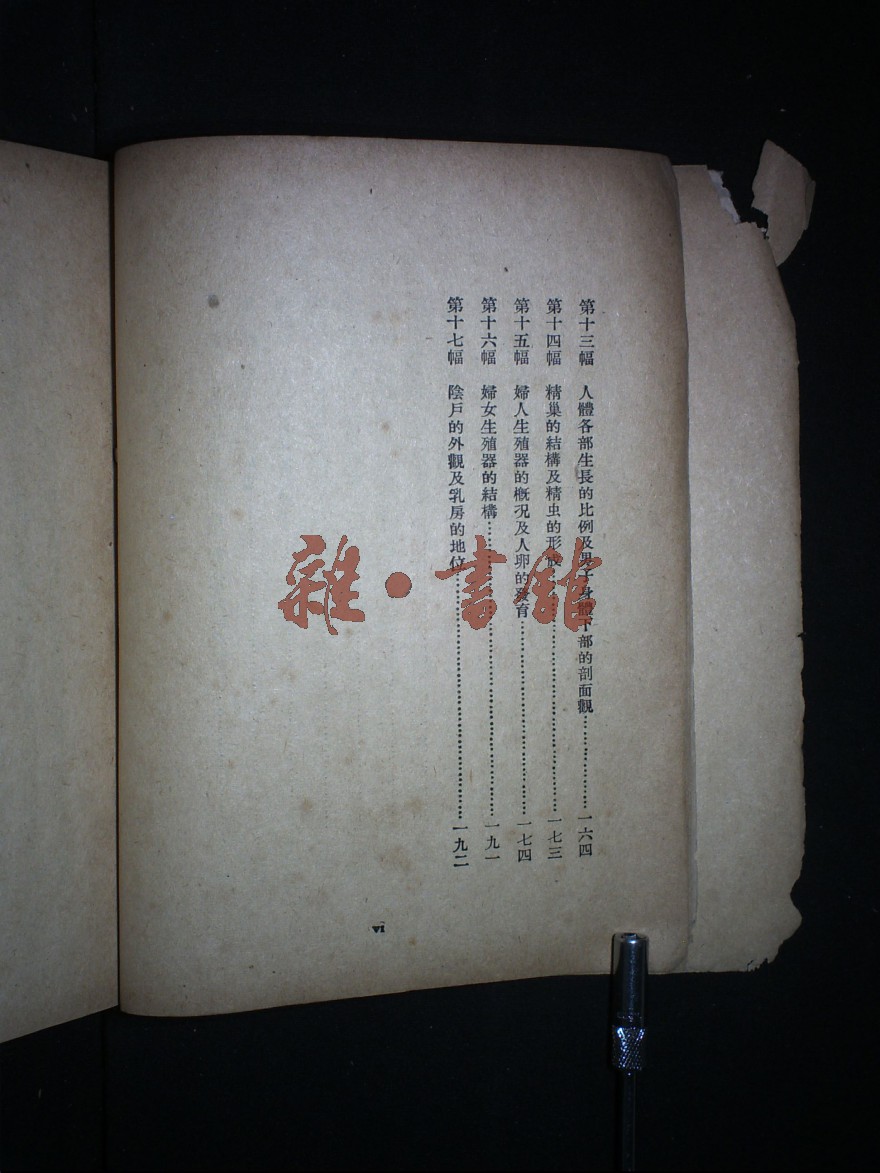 第十三幅 人體各部生長的比例及男子身體下部的剖面觀⋯⋯⋯⋯⋯⋯一六四
第十四幅 精巢的結構及精虫的形成⋯⋯⋯⋯⋯⋯一七三
第十五幅 婦人生殖器的槪况及人卵的發育⋯⋯⋯⋯⋯⋯一七四
第十六幅 婦女生殖器的結構⋯⋯⋯⋯⋯⋯一九一
第十七幅 陰戶的外觀及乳房的地位⋯⋯⋯⋯⋯⋯一九二
vi
雜·書館